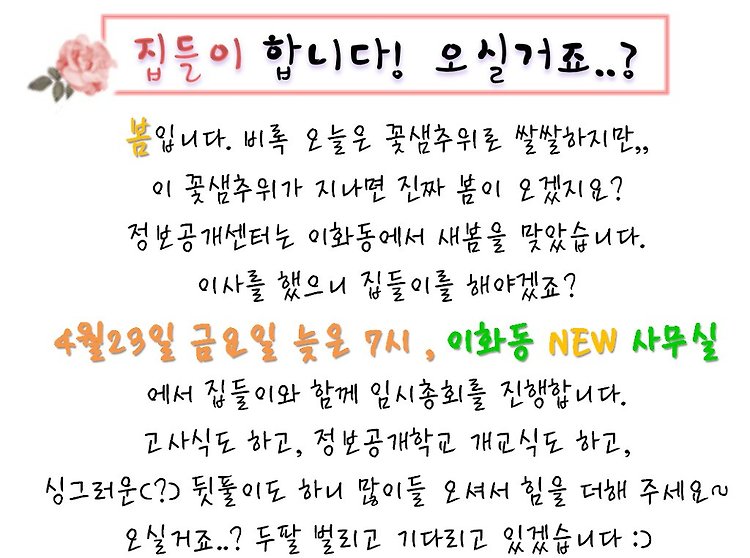 집들이 합니다! 오실거죠..?
봄입니다. 비록 오늘은 꽃샘추위로 쌀쌀하지만,,
이 꽃샘추위가 지나면 진짜 봄이 오겠지요?
정보공개센터는 이화동에서 새봄을 맞았습니다.
이사를 했으니 집들이를 해야겠죠?
4월23일 금요일 늦은 7시 , 이화동 NEW 사무실
에서 집들이와 함께 임시총회를 진행합니다.
고사식도 하고, 정보공개학교 개교식도 하고,
싱그러운(?) 뒷풀이도 하니 많이들 오셔서 힘을 더해 주세요~
오실거죠..? 두팔 벌리고 기다리고 있겠습니다 :)